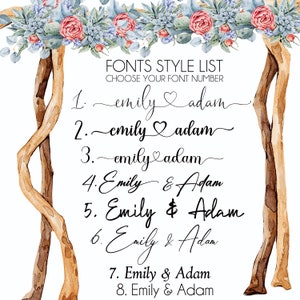 FONTS STYLE LIST
CHOOSE YOUR FONT NUMBER
1. emily ♡ adam
2. emily ♡ adam
3. emily ♡ adam
4. Emily & Adam
5. Emily & Adam
6. Emily & Adam
7. Emily & Adam
8. Emily & Adam